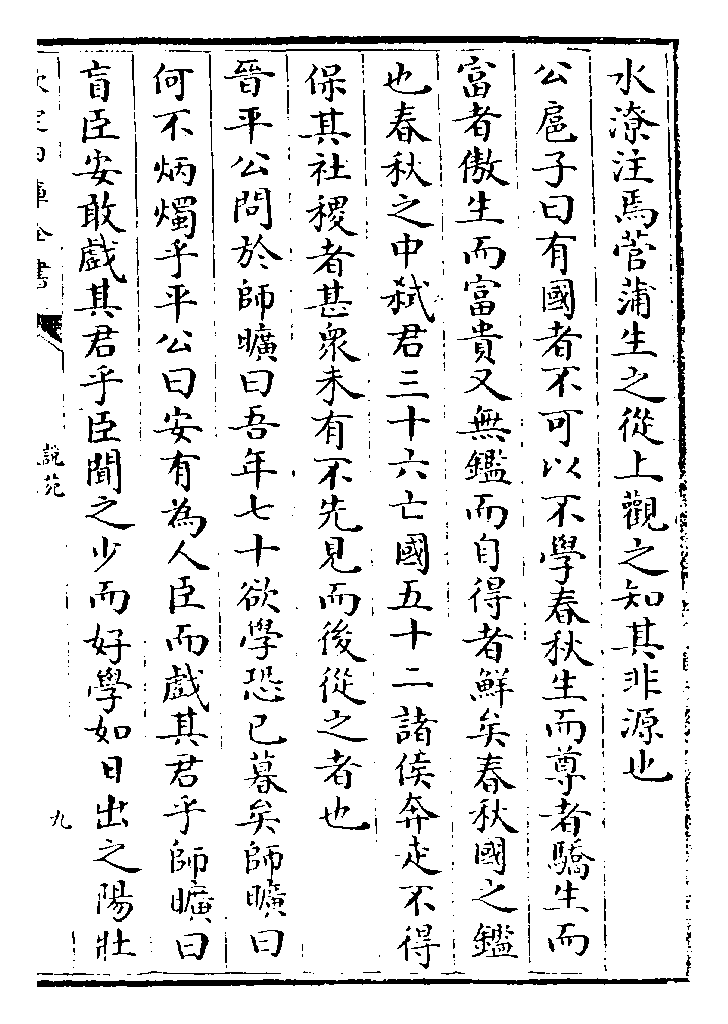 水潦注焉菅蒲生之從上觀之知其非源也
公扈子曰有國者不可以不學春秋生而尊者驕生而
富者傲生而富貴又無鑑而自得者鮮矣春秋國之鑑
也春秋之中弑君三十六亡國五十二諸侯奔走不得
保其社稷者甚衆未有不先見而後從之者也
晉平公問於師曠曰吾年七十欲學恐已暮矣師曠曰
何不炳燭乎平公曰安有為人臣而戲其君乎師曠曰
盲臣安敢戲其君乎臣聞之少而好學如日出之陽壯
全書
說苑
九